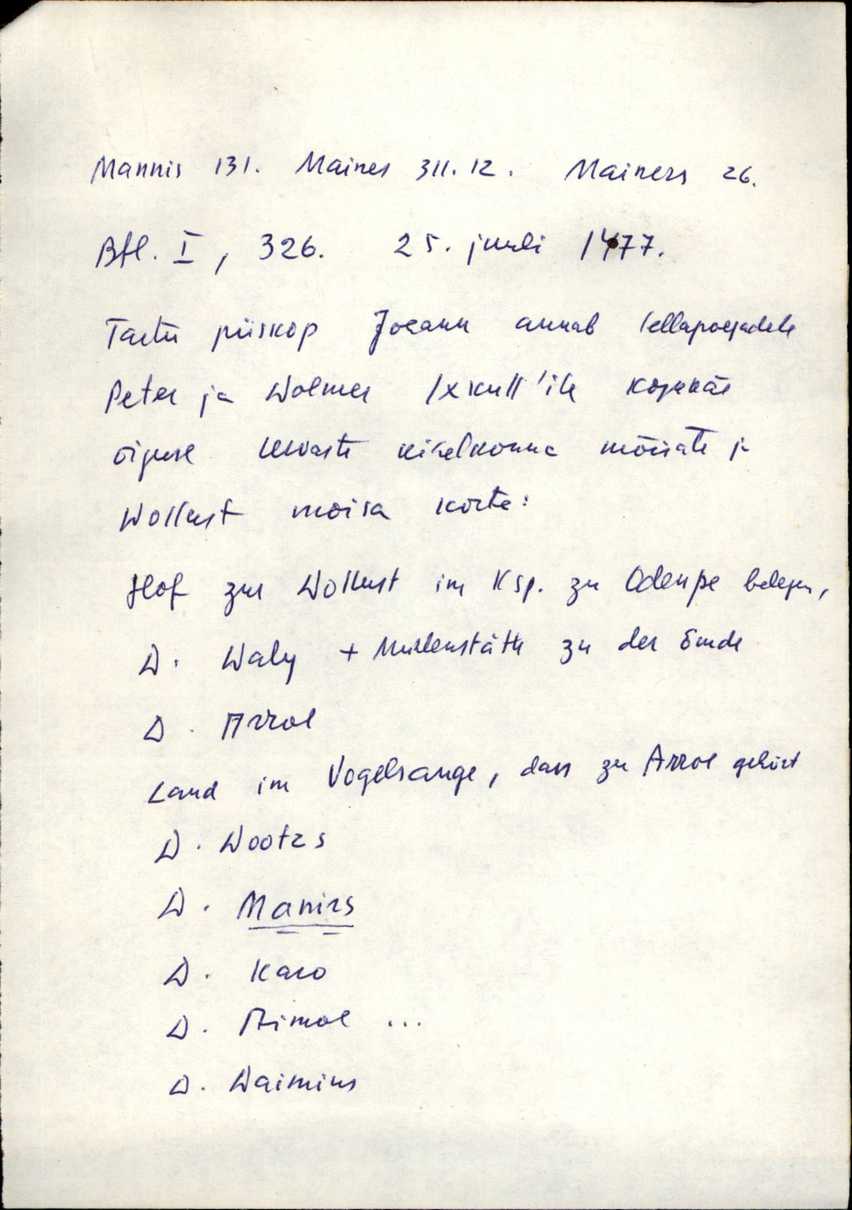 Mannis 131. Maines 311.12. Mainers 26.
Bfl. I, 326. 25. juuli 1477.
Tartu piiskop Joeann annab lellapoegadele
Peter ja Wolmer Ixkull'ile
õiguse kihelkonna mõisate ja
Wollust moisa kohta:
Hof zur Wollust im Ksp. zu Odenpe belegen,
D. Waly + Mullenstäth zu der Emde
D. Arrol
Land im Vogelsange, dass zu Arrol gehört
D. Wootzs
D. Manizs
D. Karo
D. Aimol ...
D. Waimius